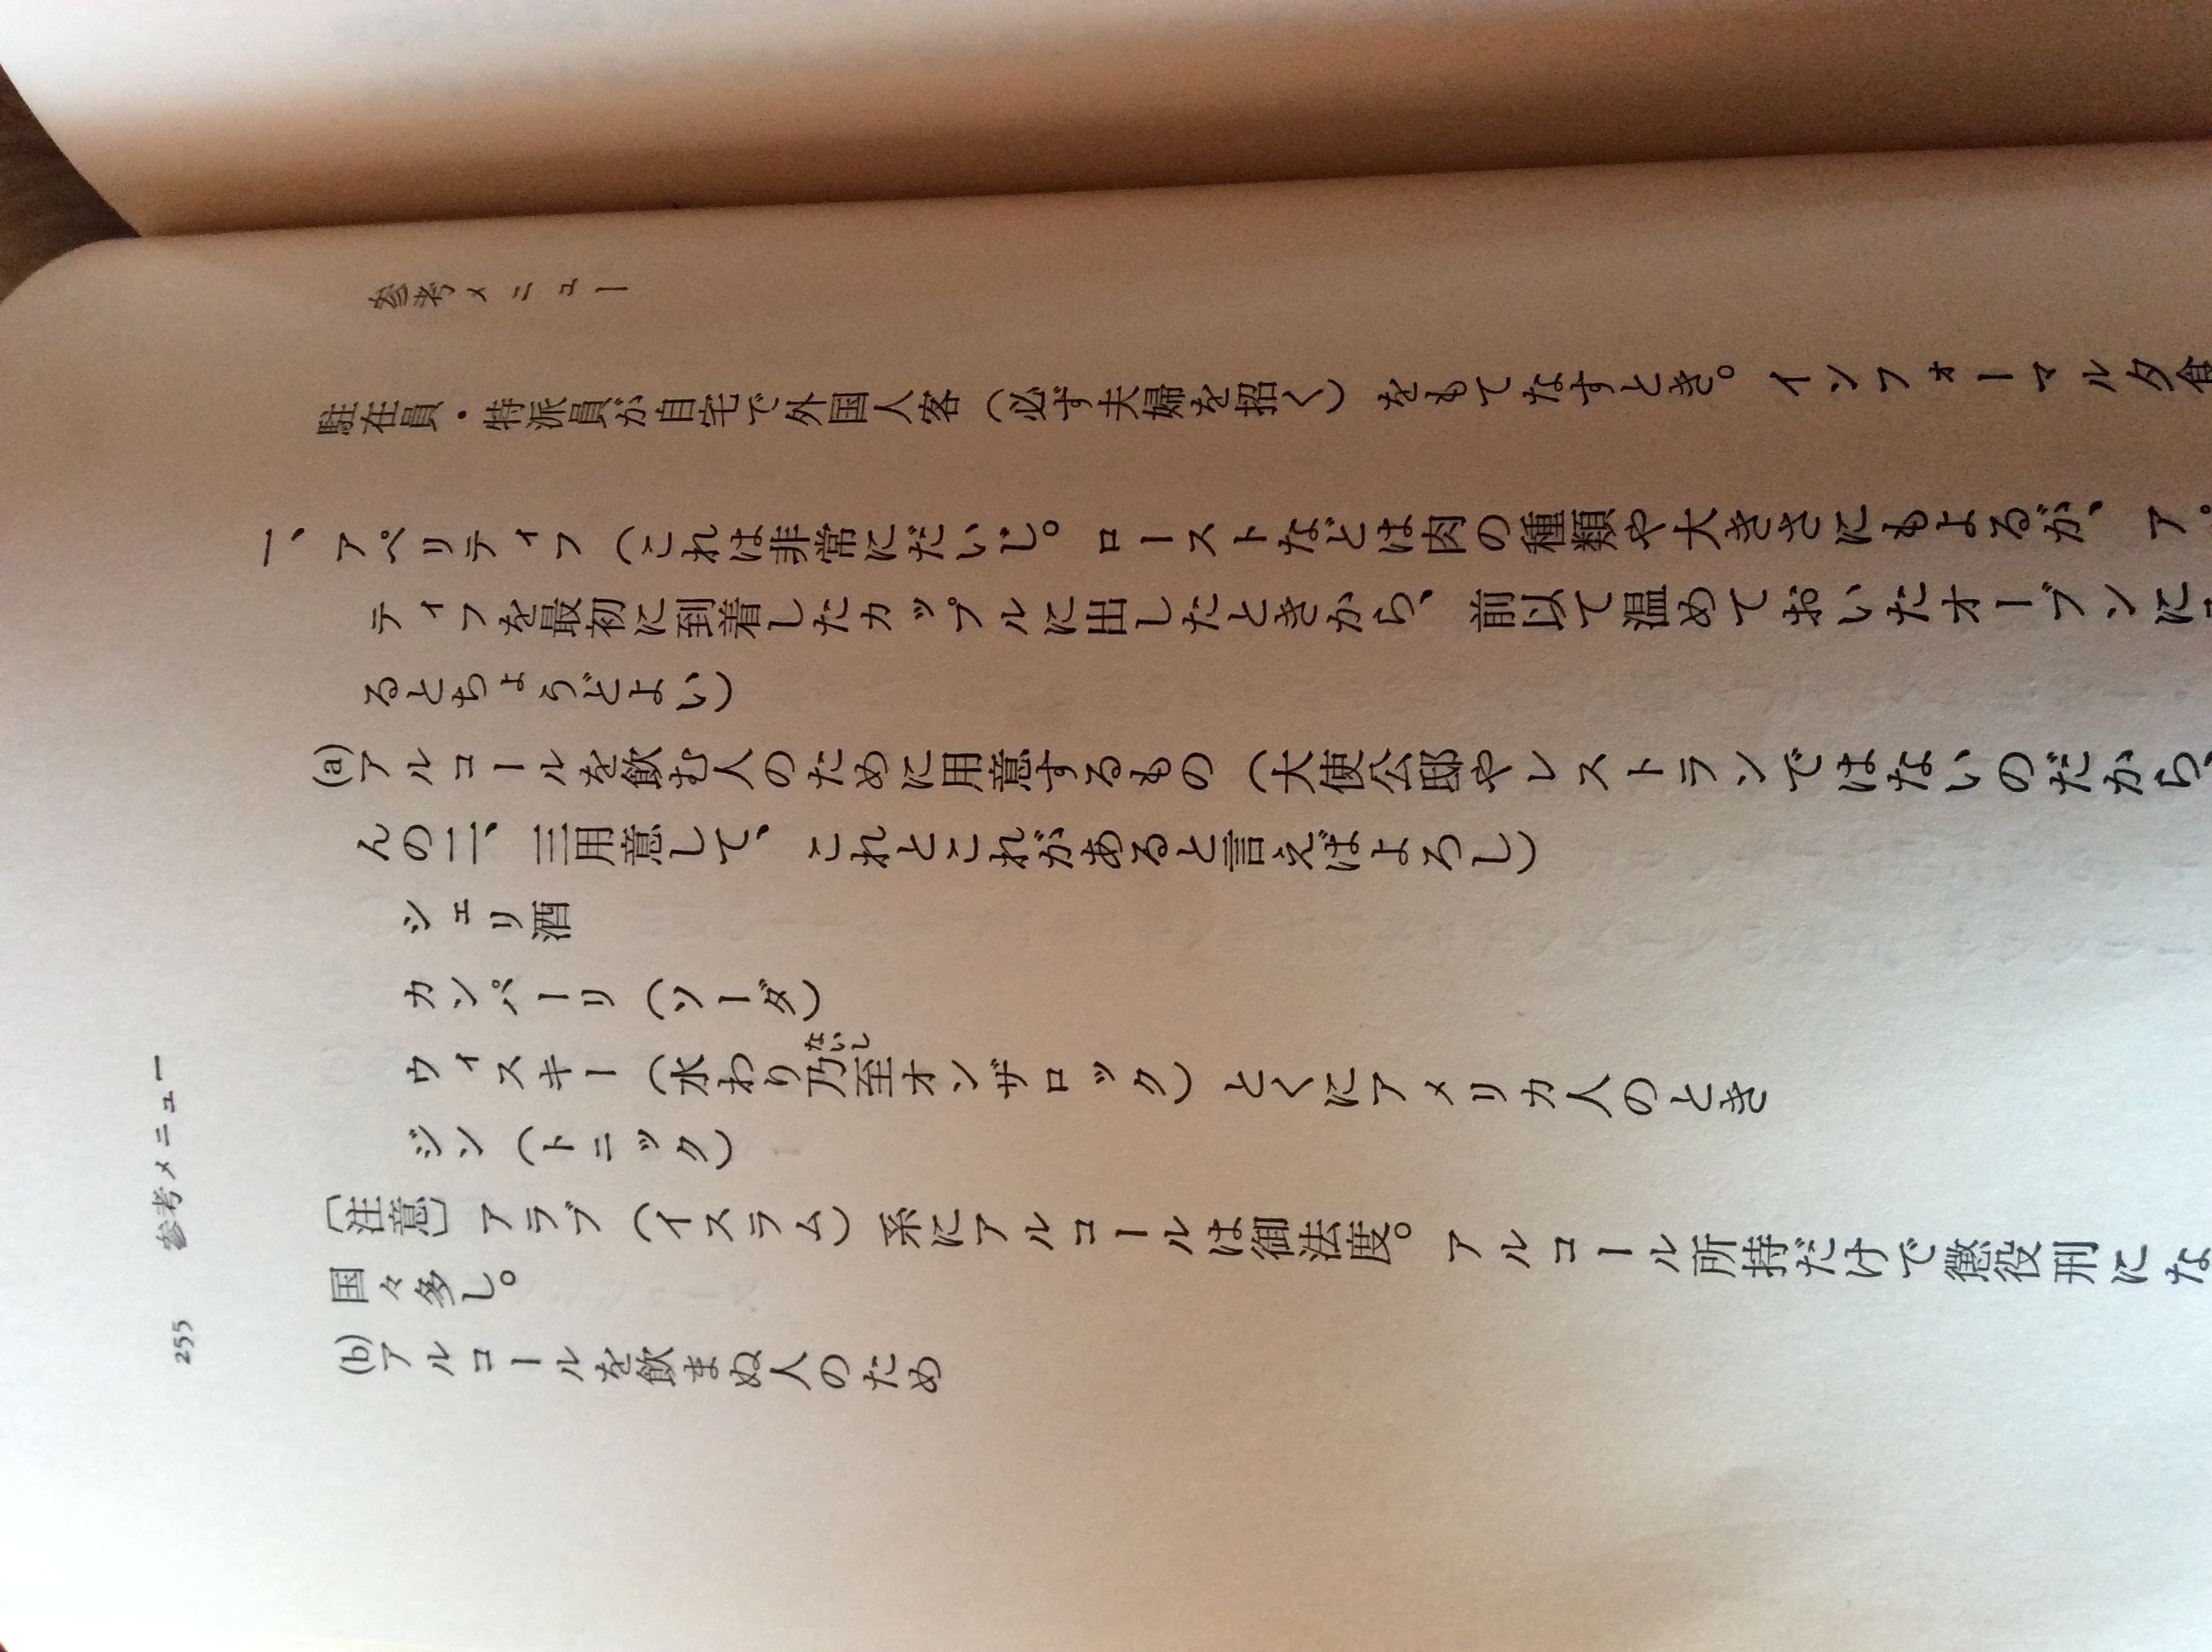 参考メニュー
駐在員・特派員が自宅で外国人客（必ず夫婦を招く）をもてなすとき。インフォーマル夕食
一、アペリティフ（これは非常にだいじ。ローストなどは肉の種類や大きさにもよるが、ア
ティフを最初に到着したカップルに出したときから、前以て温めておいたオーブンに
るとちょうどよい）
(a)アルコールを飲む人のために用意するもの（大使公邸やレストランではないのだから、
んの二、三用意して、これとこれがあると言えばよろし）
シェリ酒
カンパーリ（ソーダ）
ウィスキー（水わり乃至オンザロック）とくにアメリカ人のとき
ないし
ジン（トニック）
〔注意〕アラブ（イスラム）系にアルコールは御法度。アルコール所持だけで懲役刑にな
国々多し。
(b)アルコールを飲まぬ人のため
255 参考メニュー